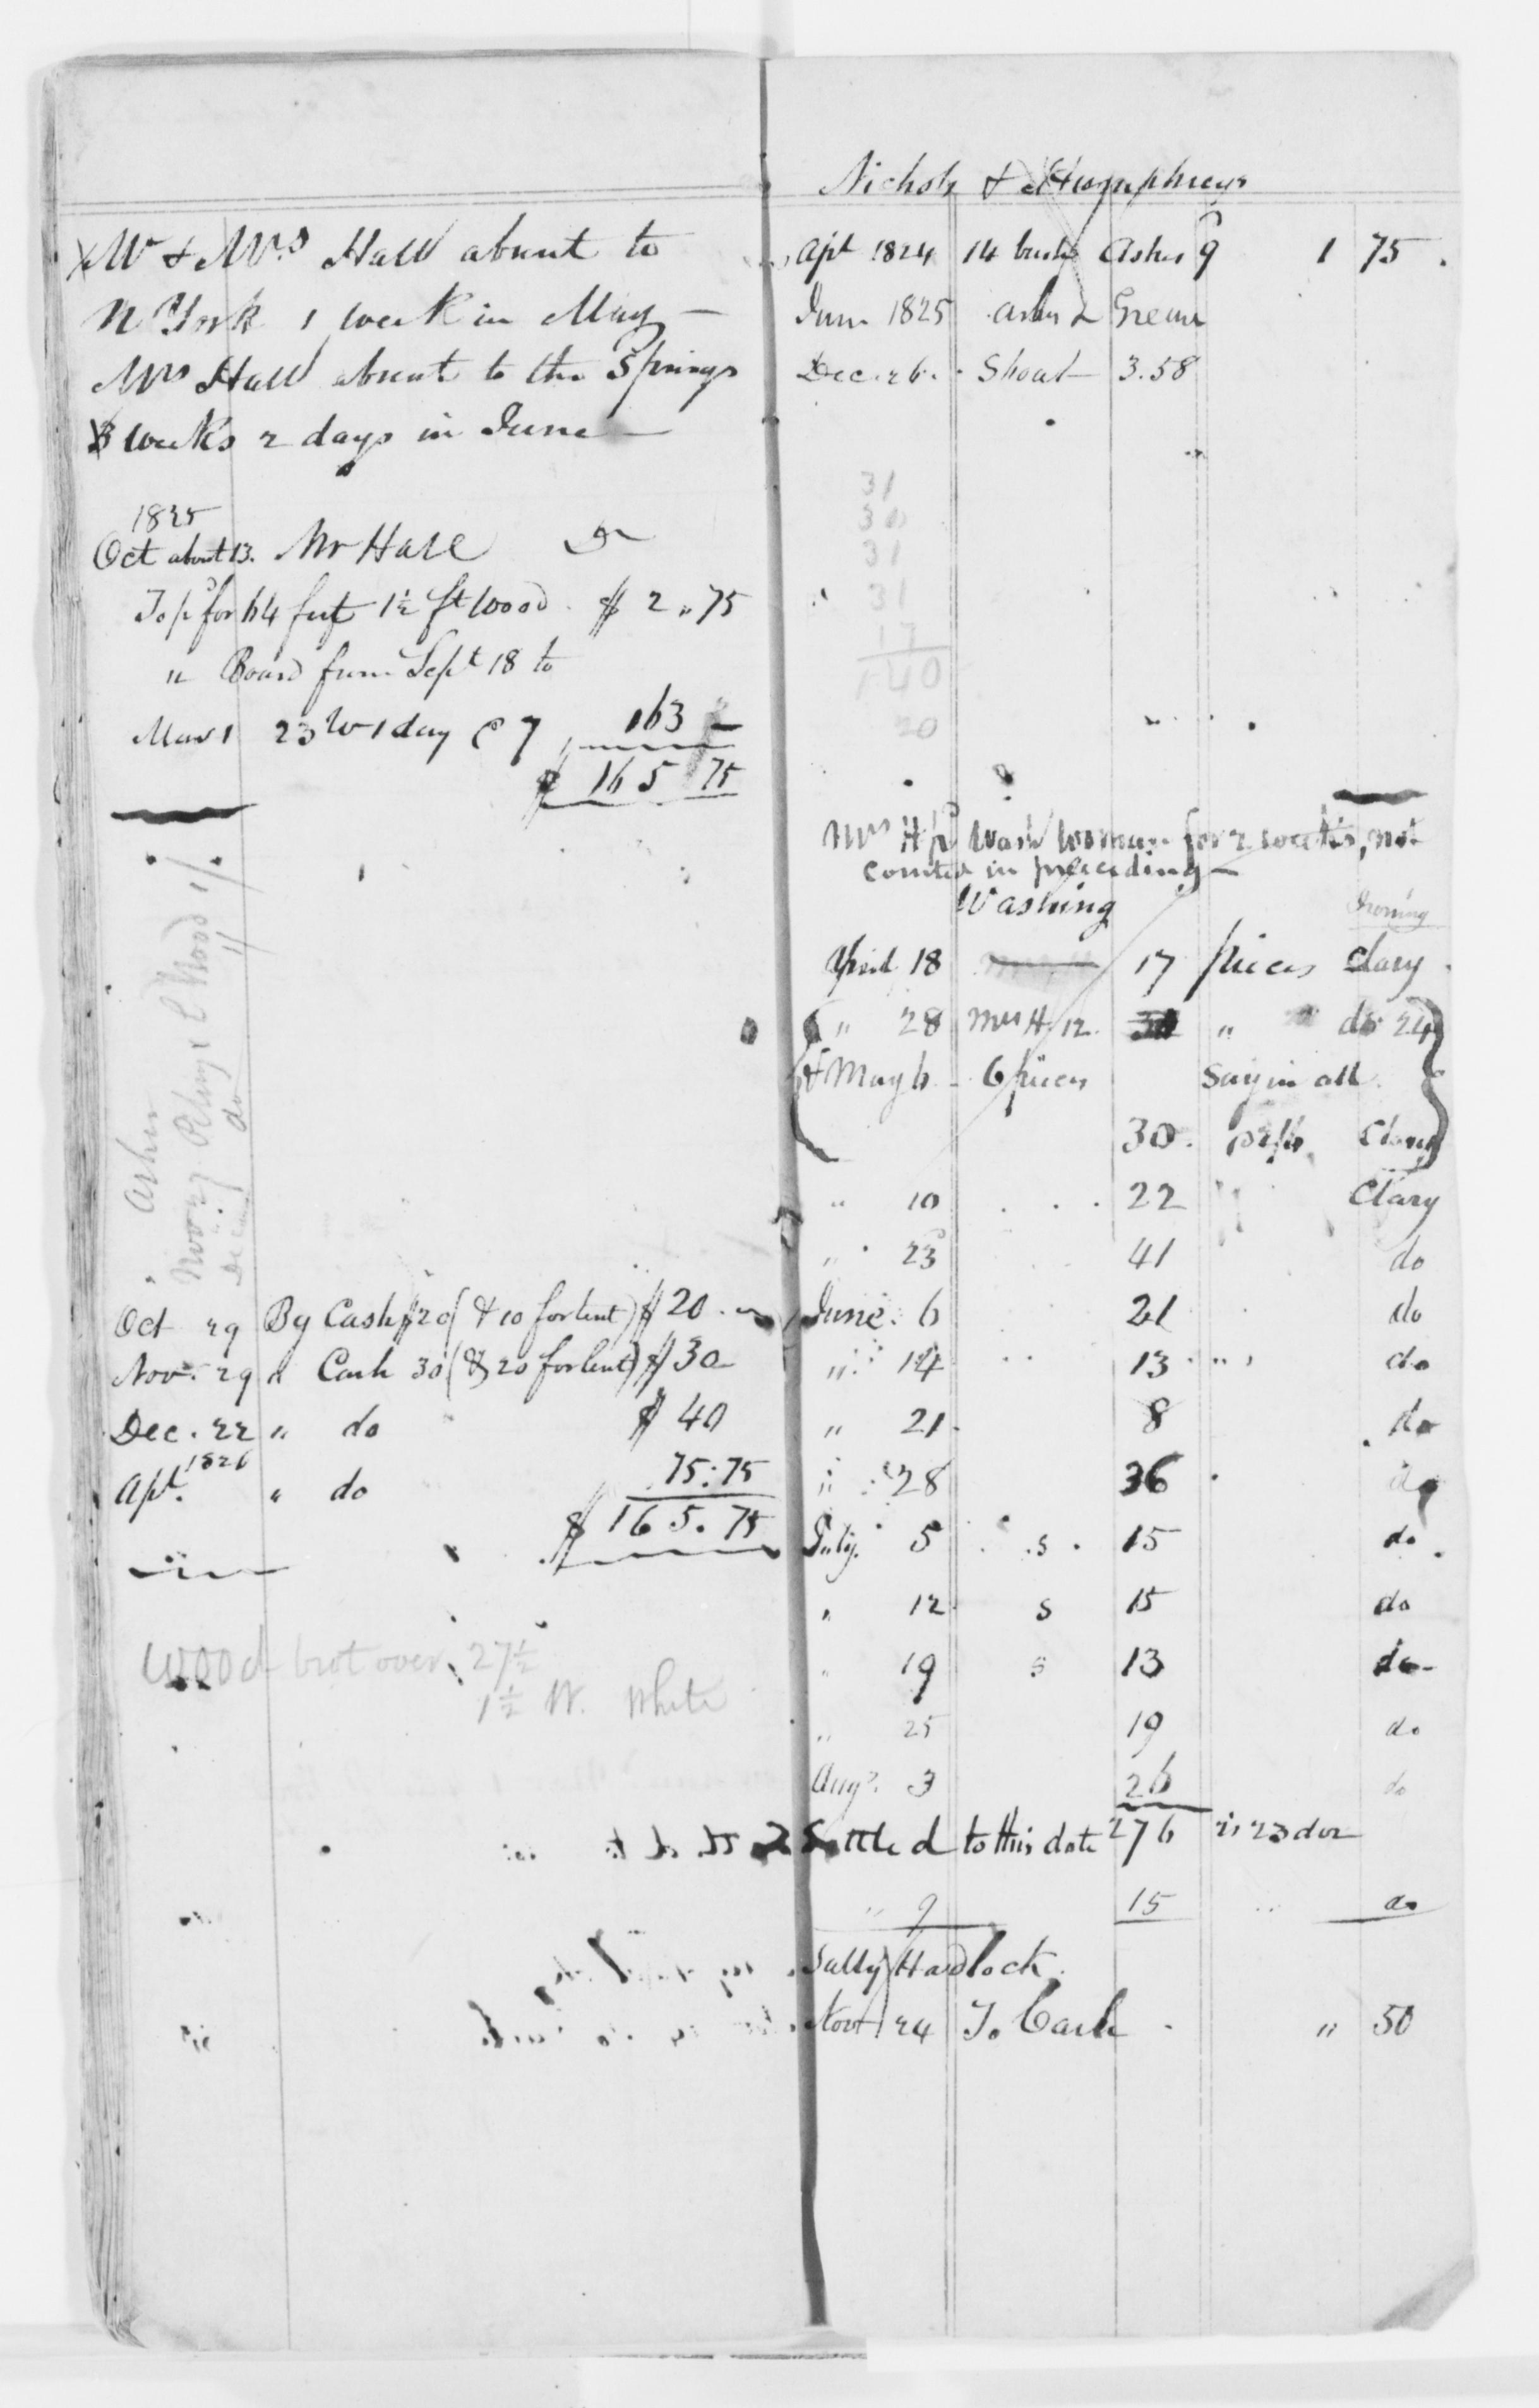 Mr & Mrs Hall absent to
N York 1 week in May —
Mrs Hall absent to the Springs
3 weeks 2 days in June —
1825
Oct about 13. Mr Hall Dr
To pd for 64 feet 1½ ft wood $ 2 " 75
" Board from Sept 18 to
Mar 1 23 w 1 day @ 7 163 —
$ 165 75
Ashes
Nov 27
Dec
do
Oct 29 By Cash $20 (& 10 for lent) $ 20. —
Nov. 29 " Cash 30 (& 20 for lent) $ 30 —
Dec. 22 " do $ 40
1826
Apl. " do 75:75
$ 165.75
Wood brot over. 27½
1½ W. White
Nichols & Humphreys
Apl 1824 14 bush Ashes 9 1 75.
June 1825 ashes & Grease
Dec. 26. Shoat 3.58
31
30
31
31
17
140
20
Mrs H pd Wash Woman for 2 weeks, not
counted in preceeding —
Washing Ironing
April 18 17 pieces Clary
" 28 Mrs H. 12. " do 24
& May 6 — 6 pieces Say in all
30. Clary
" 10 22 Clary
" 23 41 do
June. 6 21 do
" 14 13 " do
" 21. 8 do
" 28 36 do
July. 5 s 15 do
" 12 s 15 do
" 19 s 13 do
" 25 19 do
Aug. 3 26 do
Settled to this date 276 is 23 doz
" 9 15 do
Sally Hadlock
Nov 24 To Cash " 50